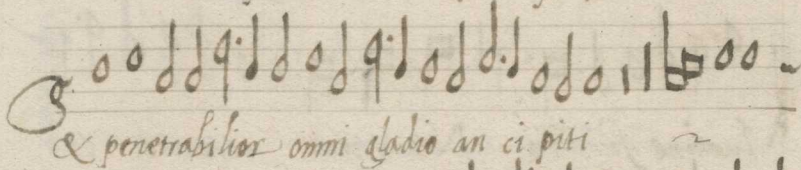 & penetrabilior omni gladio an ci piti